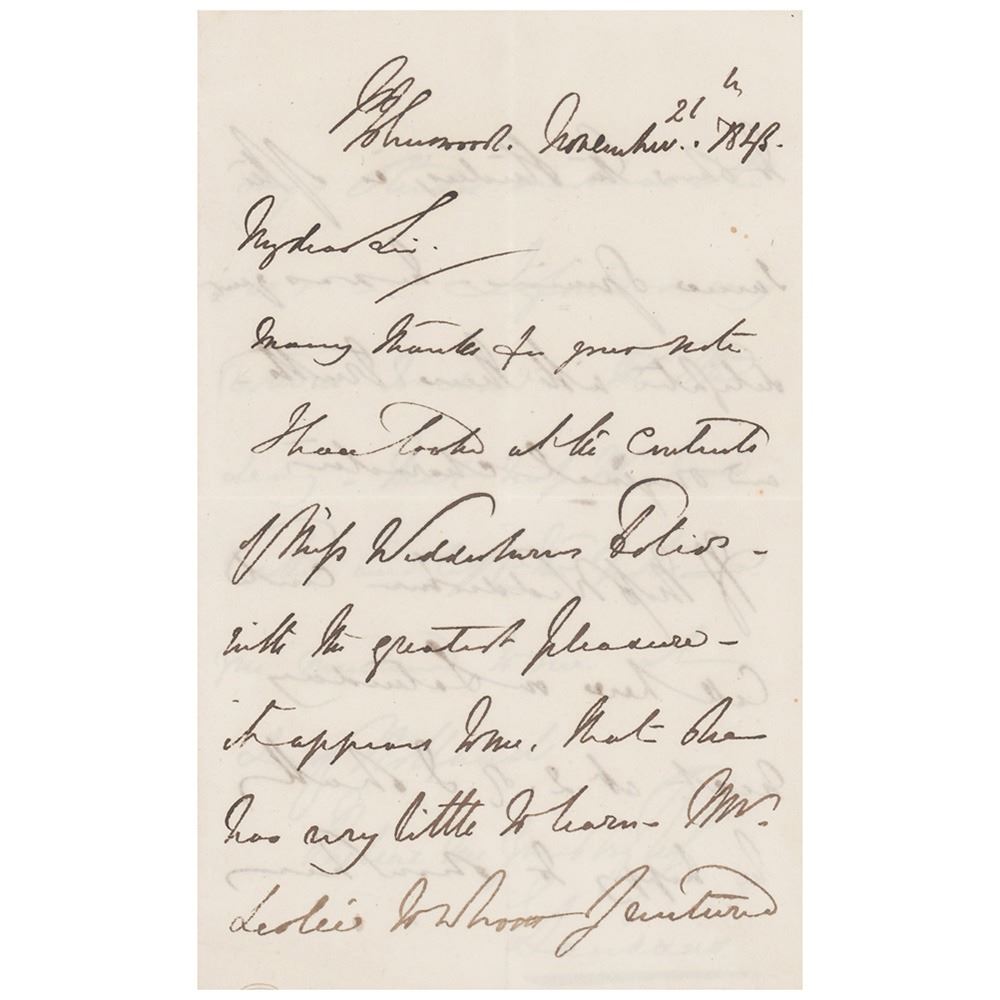 St Johnswood. November. 21th 1843.
My dear Sir.
Many thanks for your note
I have looked at the Contents
of Miss Wedderburns Folios -
with the greatest pleasure -
it appears to me. that she
has very little to learn - Mr.
Leslie to whom I ventured